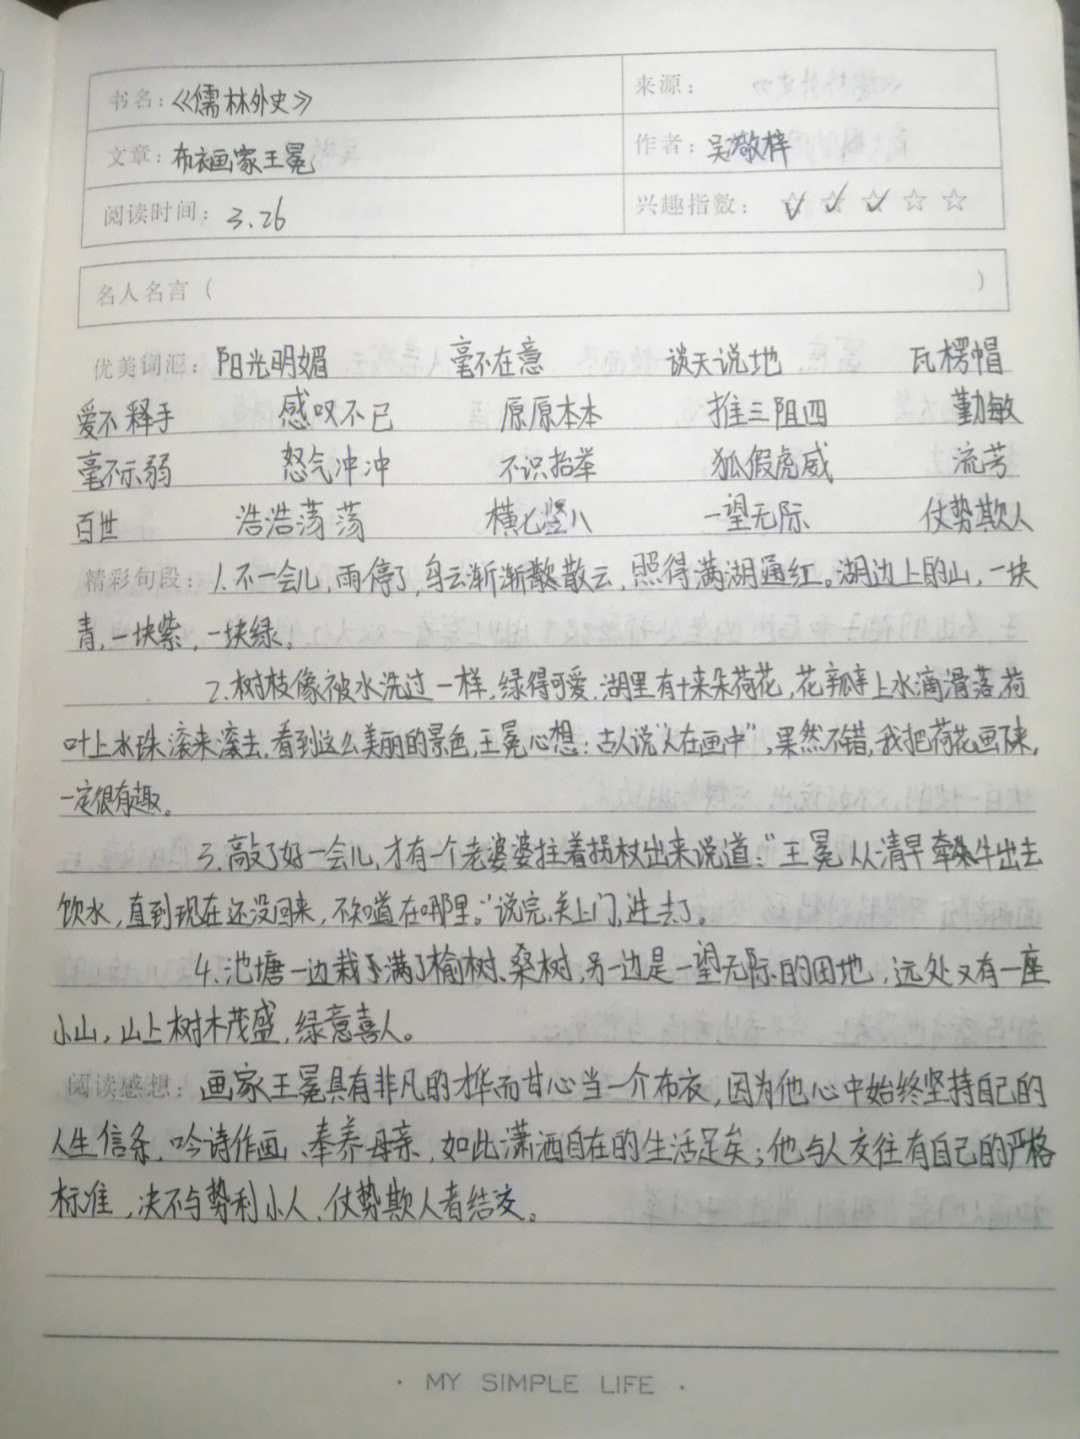 书名：《儒林外史》 来源：
文章：布衣画家王冕 作者：吴敬梓
阅读时间：3.26 兴趣指数：☆ ☆ ☆ ☆ ☆
名人名言（ ）
优美词汇：阳光明媚 毫不在意 谈天说地 瓦楞帽
爱不释手 感叹不已 原原本本 推三阻四 勤敏
毫不示弱 怒气冲冲 不识抬举 狐假虎威 流芳
百世 浩浩荡荡 横七竖八 一望无际 仗势欺人
精彩句段：1.不一会儿，雨停了，乌云渐渐散散云，照得满湖通红。湖边上的山，一块
青，一块紫，一块绿。
2.树枝像被水洗过一样，绿得可爱.湖里有十来朵荷花，花瓣上水滴滑落，荷
叶上水珠滚来滚去，看到这么美丽的景色，王冕心想：古人说"人在画中"，果然不错，我把荷花画下来，
一定很有趣。
3.敲了好一会儿，才有一个老婆婆拄着拐杖出来说道："王冕从清早牵牛出去
饮水，直到现在还没回来，不知道在哪里。"说完，关上门，进去了。
4.池塘一边栽下满了榆树、桑树，另一边是一望无际的田地，远处又有一座
小山，山上树木茂盛，绿意喜人。
阅读感想：画家王冕具有非凡的才华而甘心当一介布衣，因为他心中始终坚持自己的
人生信条，吟诗作画、奉养母亲，如此潇洒自在的生活足矣；他与人交往有自己的严格
标准，决不与势利小人、仗势欺人者结交。
· MY SIMPLE LIFE ·